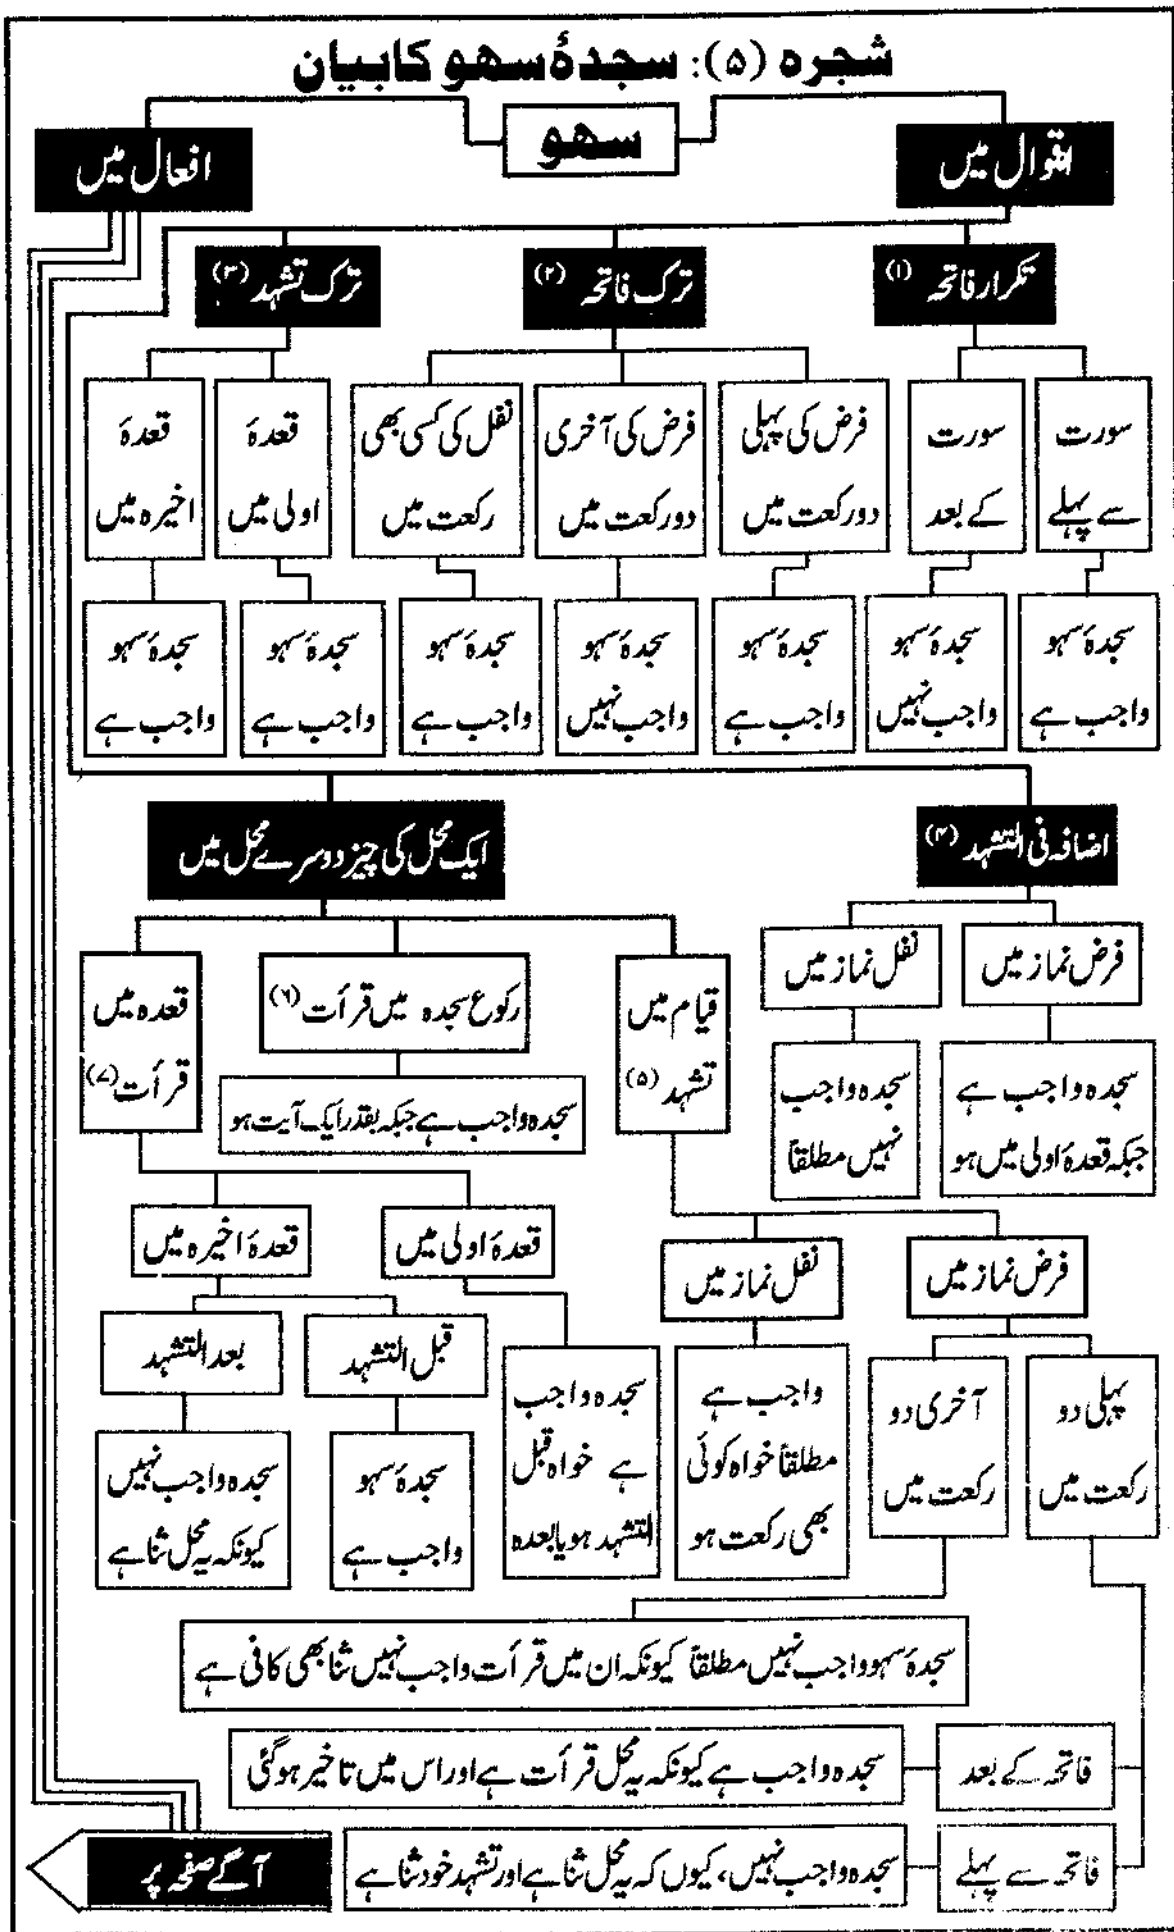 شجرہ (۵): سجدۂ سہو کا بیان
سہو
اقوال میں
افعال میں
تکرار فاتحہ (۱)
ترک فاتحہ (۲)
ترک تشہد (۳)
سورت
سے پہلے
سورت
کے بعد
فرض کی پہلی
دو رکعت میں
فرض کی آخری
دو رکعت میں
نفل کی کسی بھی
رکعت میں
قعدۂ
اولی میں
قعدۂ
اخیرہ میں
سجدۂ سہو
واجب ہے
سجدۂ سہو
واجب نہیں
سجدۂ سہو
واجب ہے
سجدۂ سہو
واجب نہیں
سجدۂ سہو
واجب ہے
سجدۂ سہو
واجب ہے
سجدۂ سہو
واجب ہے
اضافہ فی التشہد (۴)
ایک محل کی چیز دوسرے محل میں
فرض نماز میں
نفل نماز میں
سجدہ واجب ہے
جبکہ قعدۂ اولی میں ہو
سجدہ واجب
نہیں مطلقاً
قیام میں
تشہد (۵)
رکوع سجدہ میں قرأت (۶)
سجدہ واجب ہے جبکہ بقدر ایک آیت ہو
قعدہ میں
قرأت (۷)
فرض نماز میں
نفل نماز میں
قعدۂ اولی میں
قعدۂ اخیرہ میں
قبل التشہد
بعد التشہد
پہلی دو
رکعت میں
آخری دو
رکعت میں
واجب ہے
مطلقاً خواہ کوئی
بھی رکعت ہو
سجدہ واجب
ہے خواہ قبل
التشہد ہو یا بعدہ
سجدۂ سہو
واجب ہے
سجدہ واجب نہیں
کیونکہ یہ محل ثنا ہے
سجدۂ سہو واجب نہیں مطلقاً کیونکہ ان میں قرأت واجب نہیں ثنا بھی کافی ہے
فاتحہ کے بعد
سجدہ واجب ہے کیونکہ یہ محل قرأت ہے اور اس میں تاخیر ہو گئی
فاتحہ سے پہلے
سجدہ واجب نہیں، کیوں کہ یہ محل ثنا ہے اور تشہد خود ثنا ہے
آگے صفحہ پر